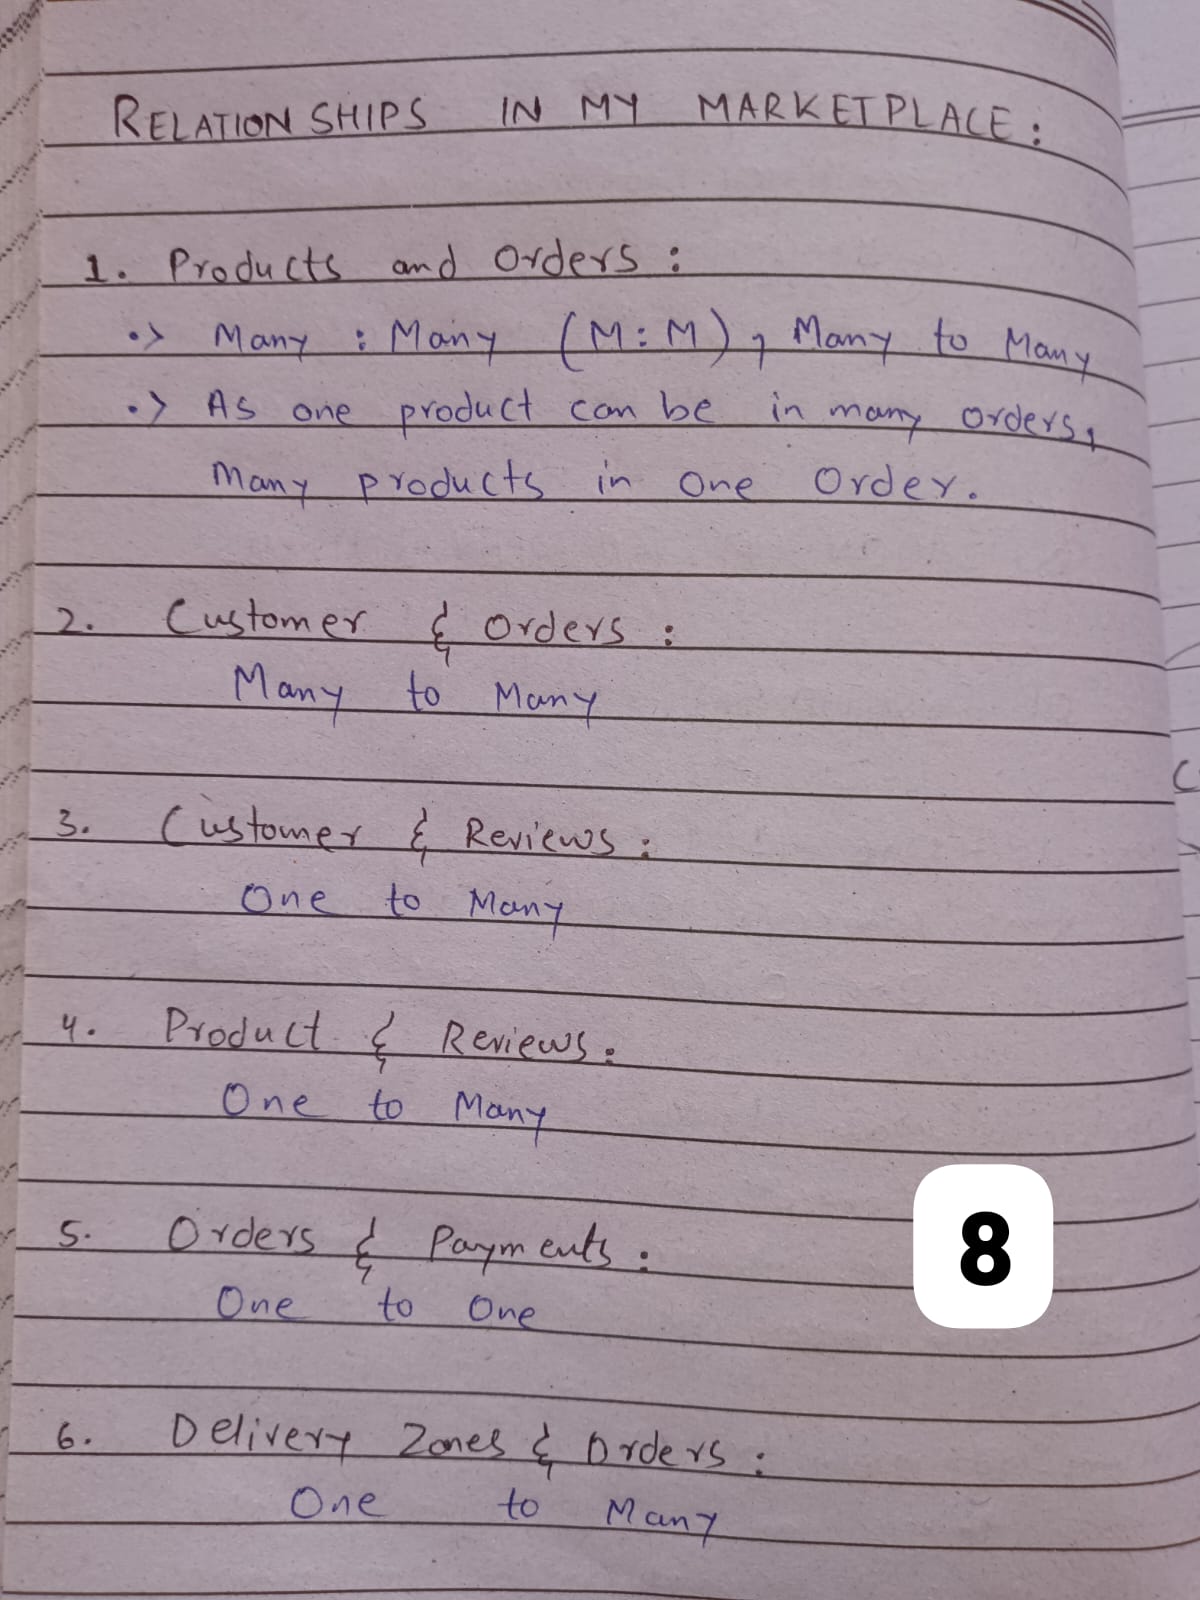 RELATIONSHIPS IN MY MARKETPLACE:
1. Products and Orders:
•> Many : Many (M:M), Many to Many
•> As one product can be in many orders,
Many products in One Order.
2. Customer & Orders:
Many to Many
3. Customer & Reviews:
One to Many
4. Product & Reviews:
One to Many
5. Orders & Payments:
One to One
6. Delivery Zones & Orders:
One to Many
8